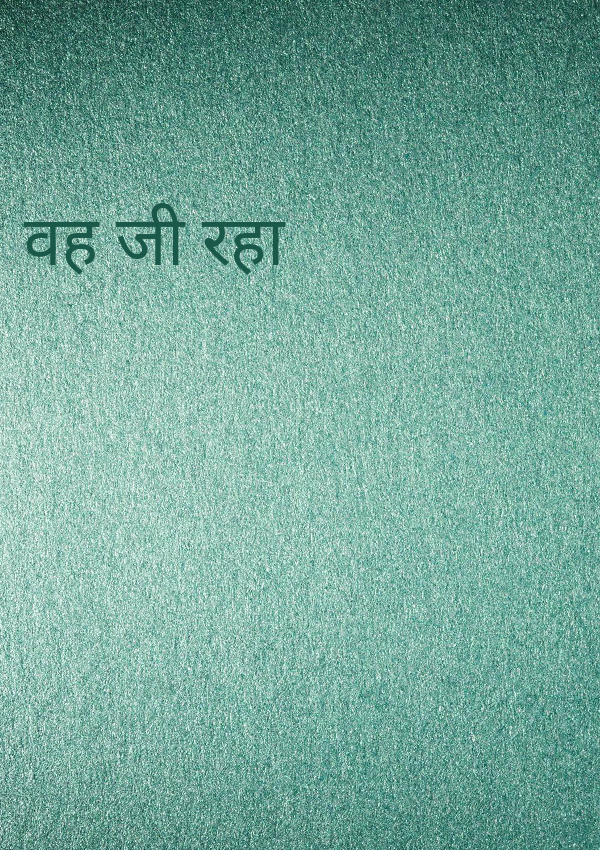 वह जी रहा